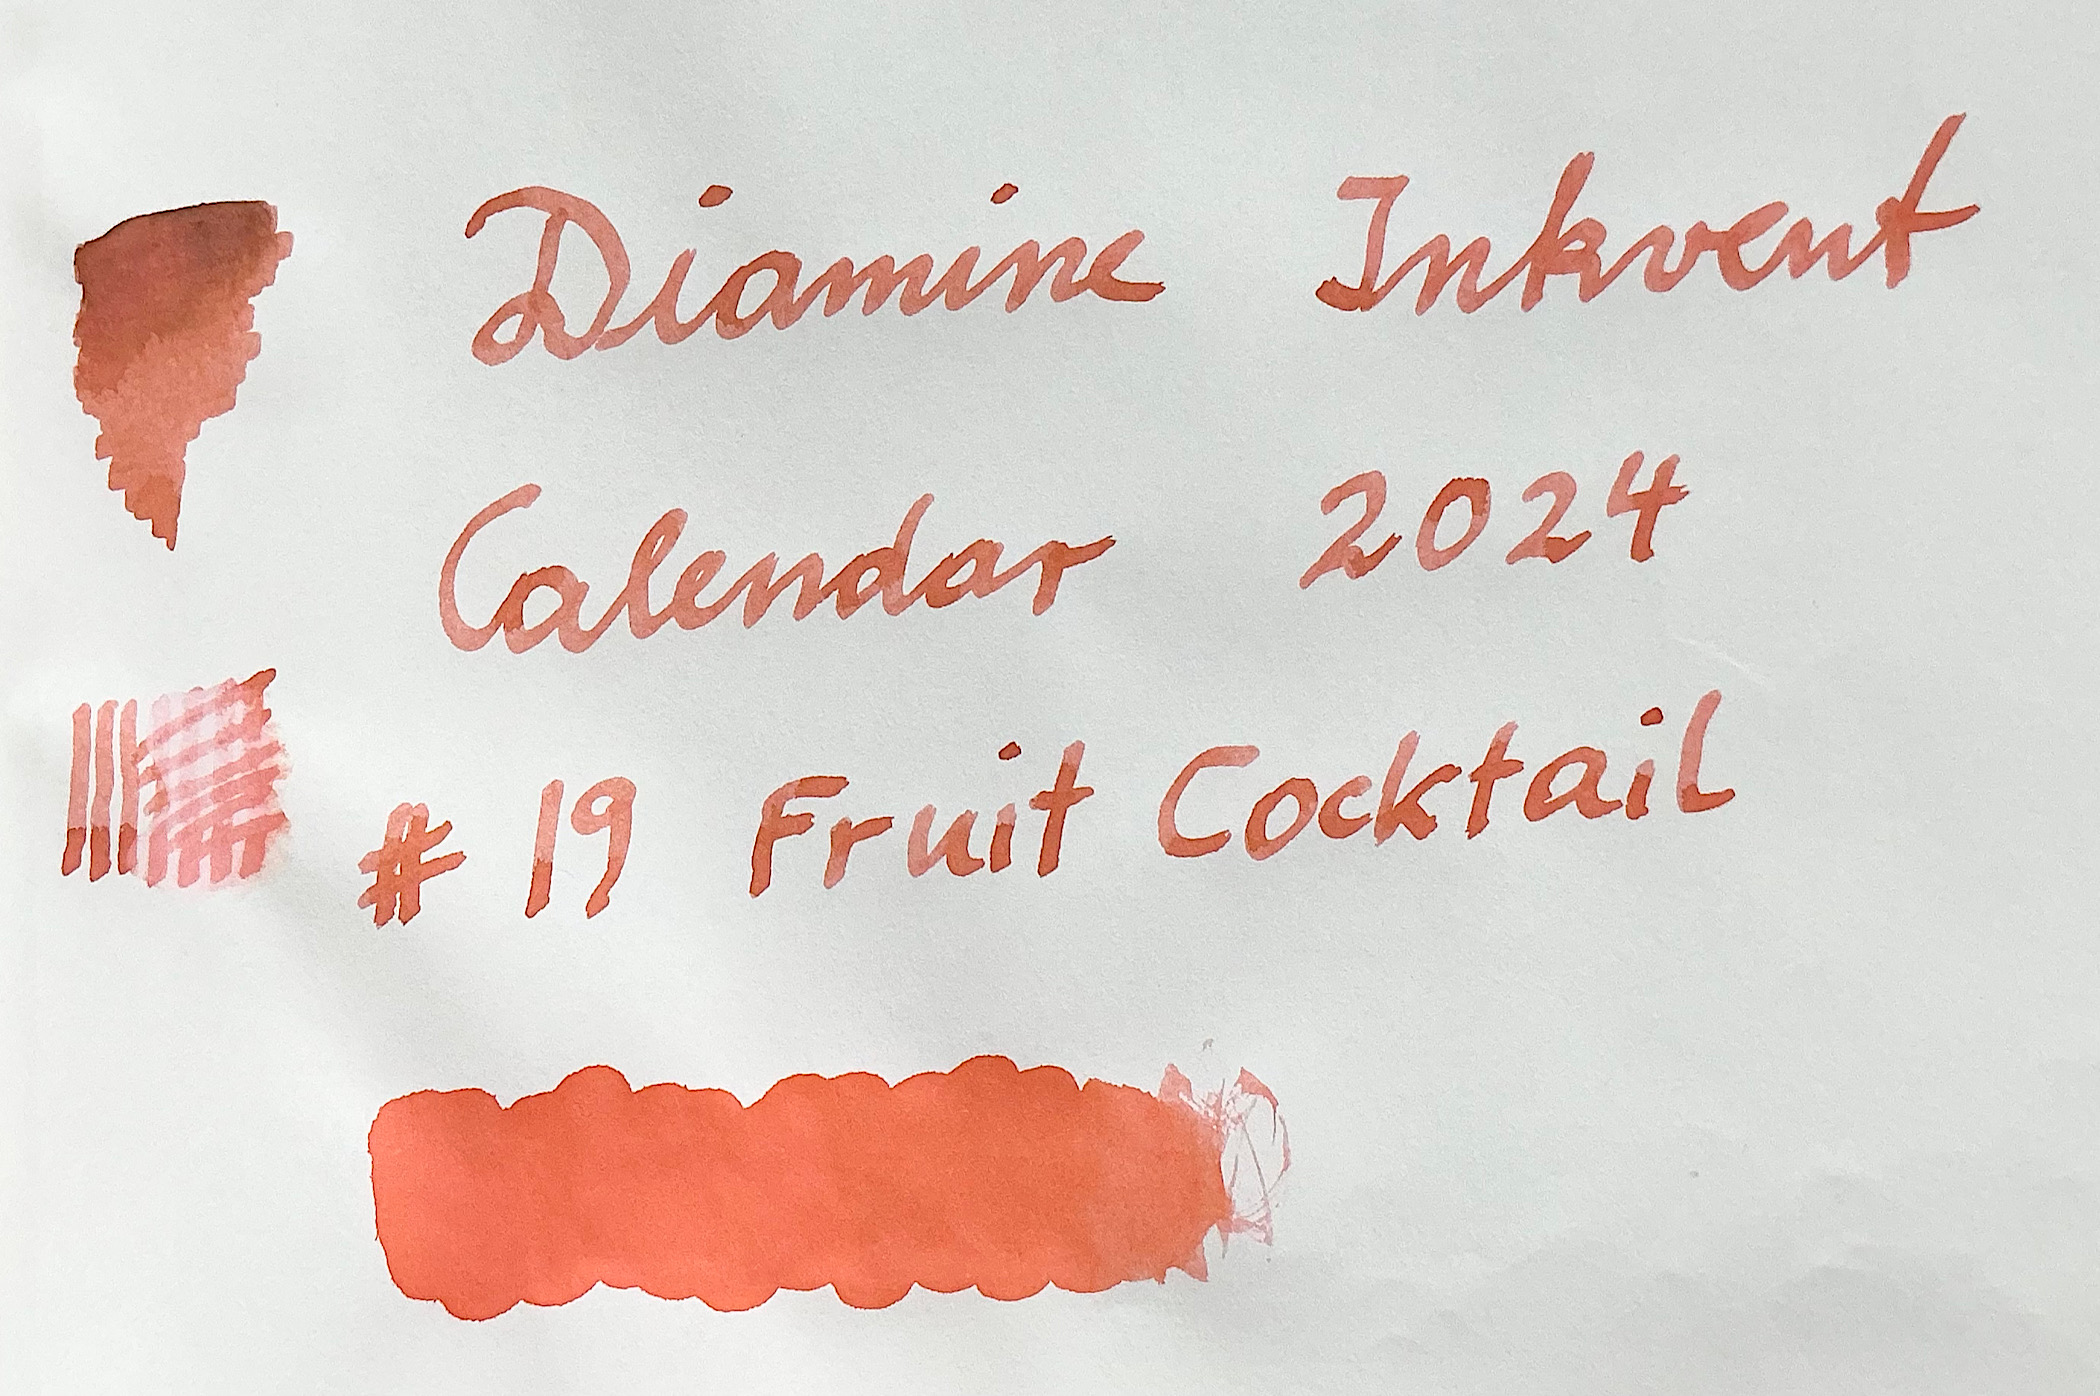 Diamine Inkvent
Calendar 2024
# 19 Fruit Cocktail